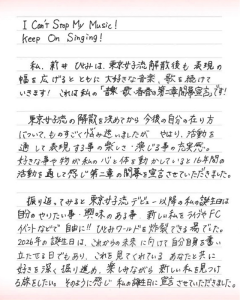 I Can't Stop My Music!
Keep On Singing!
私、新井ひとみは、東京女子流解散後も表現の
幅を広げるとともに大好きな音楽、歌を続けて
いきます! これは私の
東京女子流の解散を決めてから今後の自分の在り方
について、ものすごく悩み迷いましたが やはり、活動を
通して表現する事の楽しさ・演じる事の充実感。
好きな事や物が私の心と体を動かしていると16年間の
活動を通して感じ第二章の開幕を宣言させていただきました。
振り返ってみると東京女子流デビュー以降の私の誕生日は
自分のやりたい事・興味のある事 新しい私をライブやFC
イベントなどで自由に!! ひとみワールドを炸裂できる場でした。
2026年の誕生日は、これからの未来に向けて自分自身を奮い
立てせる日でもあり、これを見てくれている あなたと共に
好きを深く掘り進め、楽しみながら 新しい私を見つけ
る旅をしたい。そのように感じ 私の誕生日に宣言させていただきました。